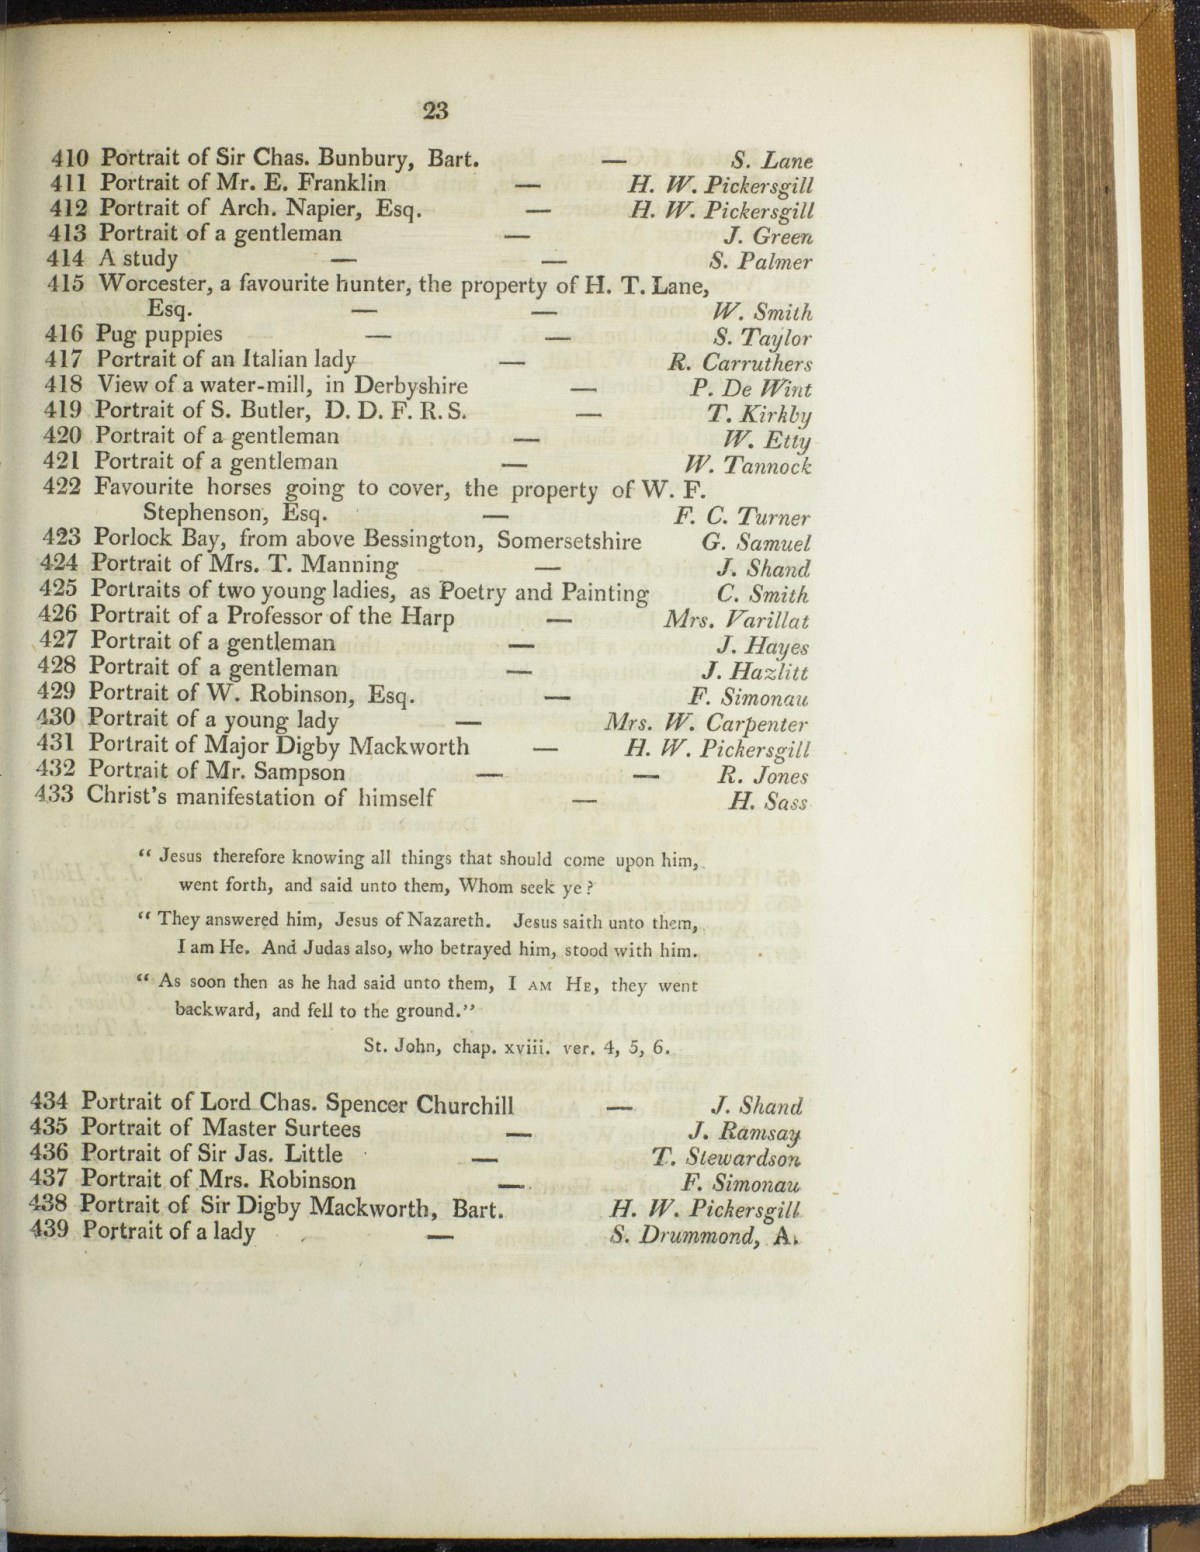 23
410 Portrait of Sir Chas. Bunbury, Bart. — S. Lane
411 Portrait of Mr. E. Franklin — H. W. Pickersgill
412 Portrait of Arch. Napier, Esq. — H. W. Pickersgill
413 Portrait of a gentleman — J. Green
414 A study — — S. Palmer
415 Worcester, a favourite hunter, the property of H. T. Lane,
Esq. — — W. Smith
416 Pug puppies — — S. Taylor
417 Portrait of an Italian lady — R. Carruthers
418 View of a water-mill, in Derbyshire — P. De Wint
419 Portrait of S. Butler, D. D. F. R. S. — T. Kirkby
420 Portrait of a gentleman — W. Etty
421 Portrait of a gentleman — W. Tannock
422 Favourite horses going to cover, the property of W. F.
Stephenson, Esq. — F. C. Turner
423 Porlock Bay, from above Bessington, Somersetshire G. Samuel
424 Portrait of Mrs. T. Manning — J. Shand
425 Portraits of two young ladies, as Poetry and Painting C. Smith
426 Portrait of a Professor of the Harp — Mrs. Varillat
427 Portrait of a gentleman — J. Hayes
428 Portrait of a gentleman — J. Hazlitt
429 Portrait of W. Robinson, Esq. — F. Simonau
430 Portrait of a young lady — Mrs. W. Carpenter
431 Portrait of Major Digby Mackworth — H. W. Pickersgill
432 Portrait of Mr. Sampson — — R. Jones
433 Christ's manifestation of himself — H. Sass
“ Jesus therefore knowing all things that should come upon him,
went forth, and said unto them, Whom seek ye?
“ They answered him, Jesus of Nazareth. Jesus saith unto them,
I am He. And Judas also, who betrayed him, stood with him.
“ As soon then as he had said unto them, I AM HE, they went
backward, and fell to the ground.”
St. John, chap. xviii. ver. 4, 5, 6.
434 Portrait of Lord Chas. Spencer Churchill — J. Shand
435 Portrait of Master Surtees — J. Ramsay
436 Portrait of Sir Jas. Little — T. Stewardson
437 Portrait of Mrs. Robinson — F. Simonau
438 Portrait of Sir Digby Mackworth, Bart. H. W. Pickersgill
439 Portrait of a lady — S. Drummond, A.